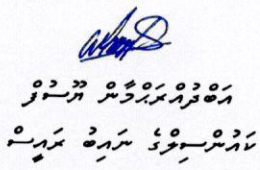 އަބްދުއްރަޙްމާން ޔޫސުފް
ކައުންސިލްގެ ނައިބު ރައީސް